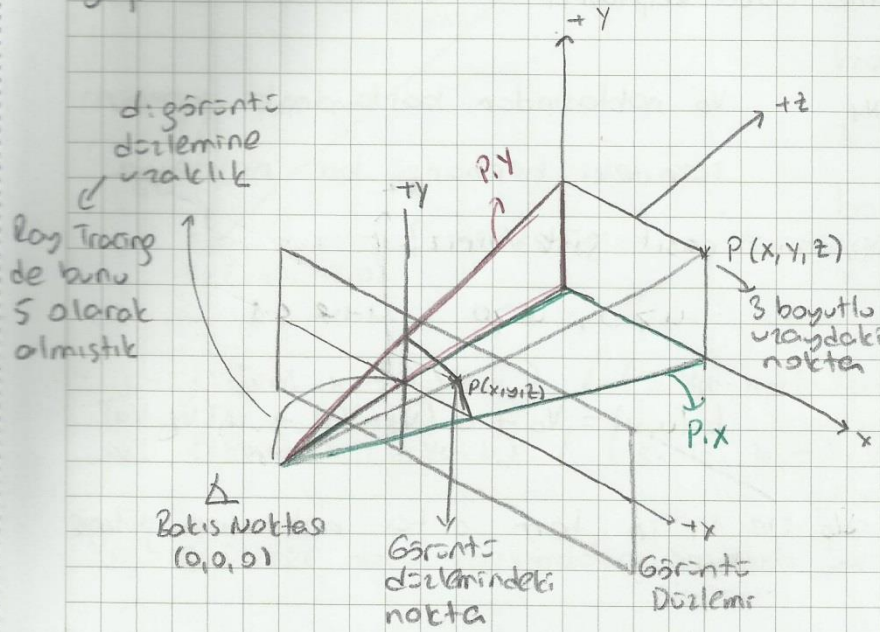 +Y
+Z
d: görüntü
düzlemine
uzaklık
Ray Tracing
de bunu
5 olarak
almıştık
+Y
P.Y
P(X,Y,Z)
3 boyutlu
uzaydaki
nokta
P(x,y,z)
P.X
x
+x
Bakış Noktası
(0,0,0)
Görüntü
düzlemindeki
nokta
Görüntü
Düzlemi